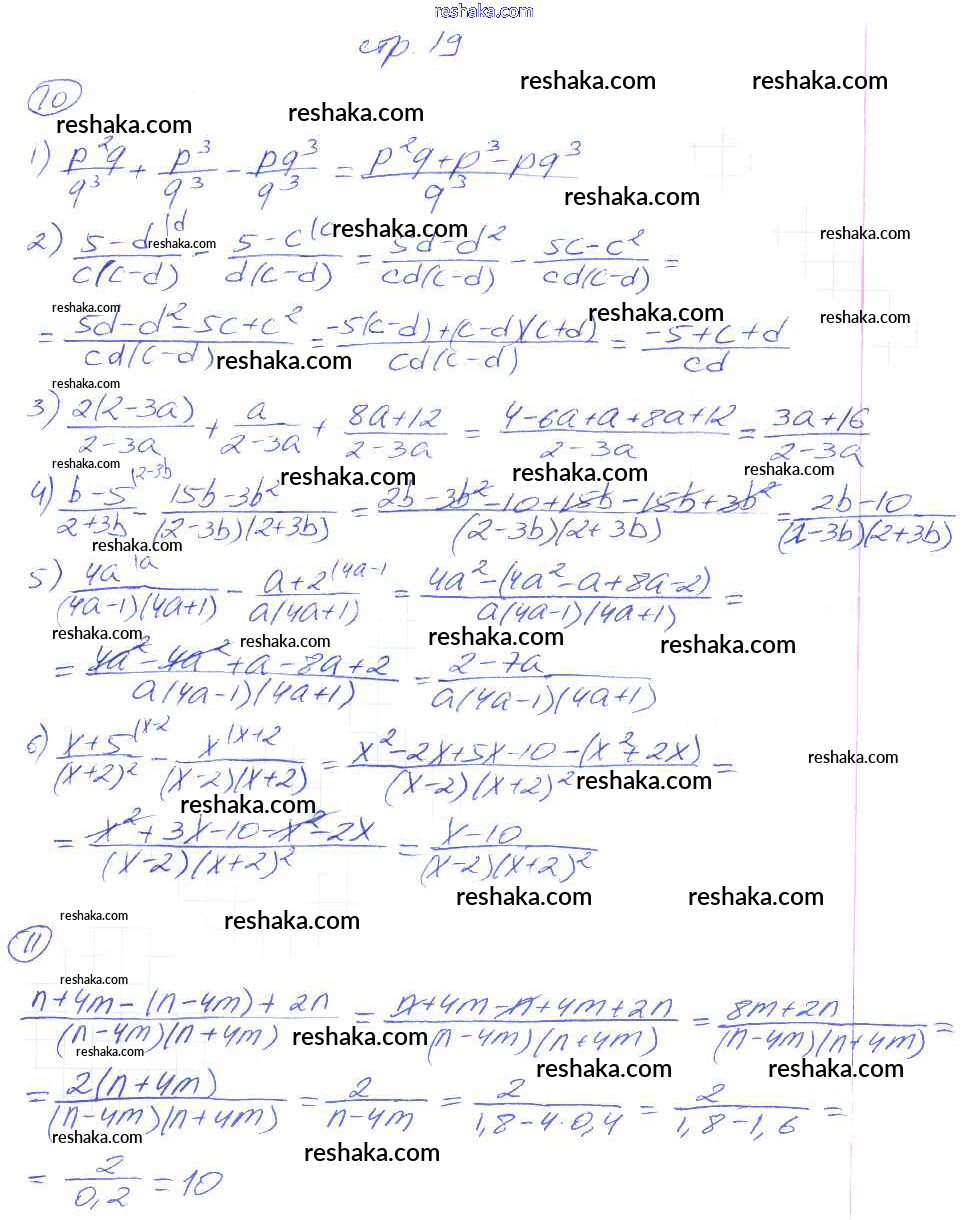 reshaka.com
стр. 19
reshaka.com reshaka.com
10
reshaka.com reshaka.com
1) p²q/q³ + p³/q³ - pq³/q³ = (p²q+p³-pq³)/q³
reshaka.com
2) (5-d)/(c(c-d)) |d - (5-c)/(d(c-d)) |c = (5d-d²)/(cd(c-d)) - (5c-c²)/(cd(c-d)) =
reshaka.com reshaka.com reshaka.com
reshaka.com reshaka.com reshaka.com
= (5d-d²-5c+c²)/(cd(c-d)) = (-5(c-d)+(c-d)(c+d))/(cd(c-d)) = (-5+c+d)/(cd)
reshaka.com
reshaka.com
3) 2(2-3a)/(2-3a) + a/(2-3a) + (8a+12)/(2-3a) = (4-6a+a+8a+12)/(2-3a) = (3a+16)/(2-3a)
reshaka.com reshaka.com reshaka.com reshaka.com
4) (b-5)/(2+3b) |2-3b - (15b-3b²)/((2-3b)(2+3b)) = (2b-3b²-10+15b-15b+3b²)/((2-3b)(2+3b)) = (2b-10)/((2-3b)(2+3b))
reshaka.com
5) 4a/((4a-1)(4a+1)) |a - (a+2)/(a(4a+1)) |4a-1 = (4a²-(4a²-a+8a-2))/(a(4a-1)(4a+1)) =
reshaka.com reshaka.com reshaka.com reshaka.com
= (4a²-4a²+a-8a+2)/(a(4a-1)(4a+1)) = (2-7a)/(a(4a-1)(4a+1))
6) (x+5)/(x+2)² |x-2 - x/((x-2)(x+2)) |x+2 = (x²-2x+5x-10-(x²+2x))/((x-2)(x+2)²) =
reshaka.com reshaka.com
reshaka.com
= (x²+3x-10-x²-2x)/((x-2)(x+2)²) = (x-10)/((x-2)(x+2)²)
reshaka.com reshaka.com
reshaka.com reshaka.com
11
reshaka.com
(n+4m-(n-4m)+2n)/((n-4m)(n+4m)) = (n+4m-n+4m+2n)/((n-4m)(n+4m)) = (8m+2n)/((n-4m)(n+4m)) =
reshaka.com
reshaka.com reshaka.com reshaka.com
= 2(n+4m)/((n-4m)(n+4m)) = 2/(n-4m) = 2/(1,8-4·0,4) = 2/(1,8-1,6) =
reshaka.com reshaka.com
= 2/0,2 = 10